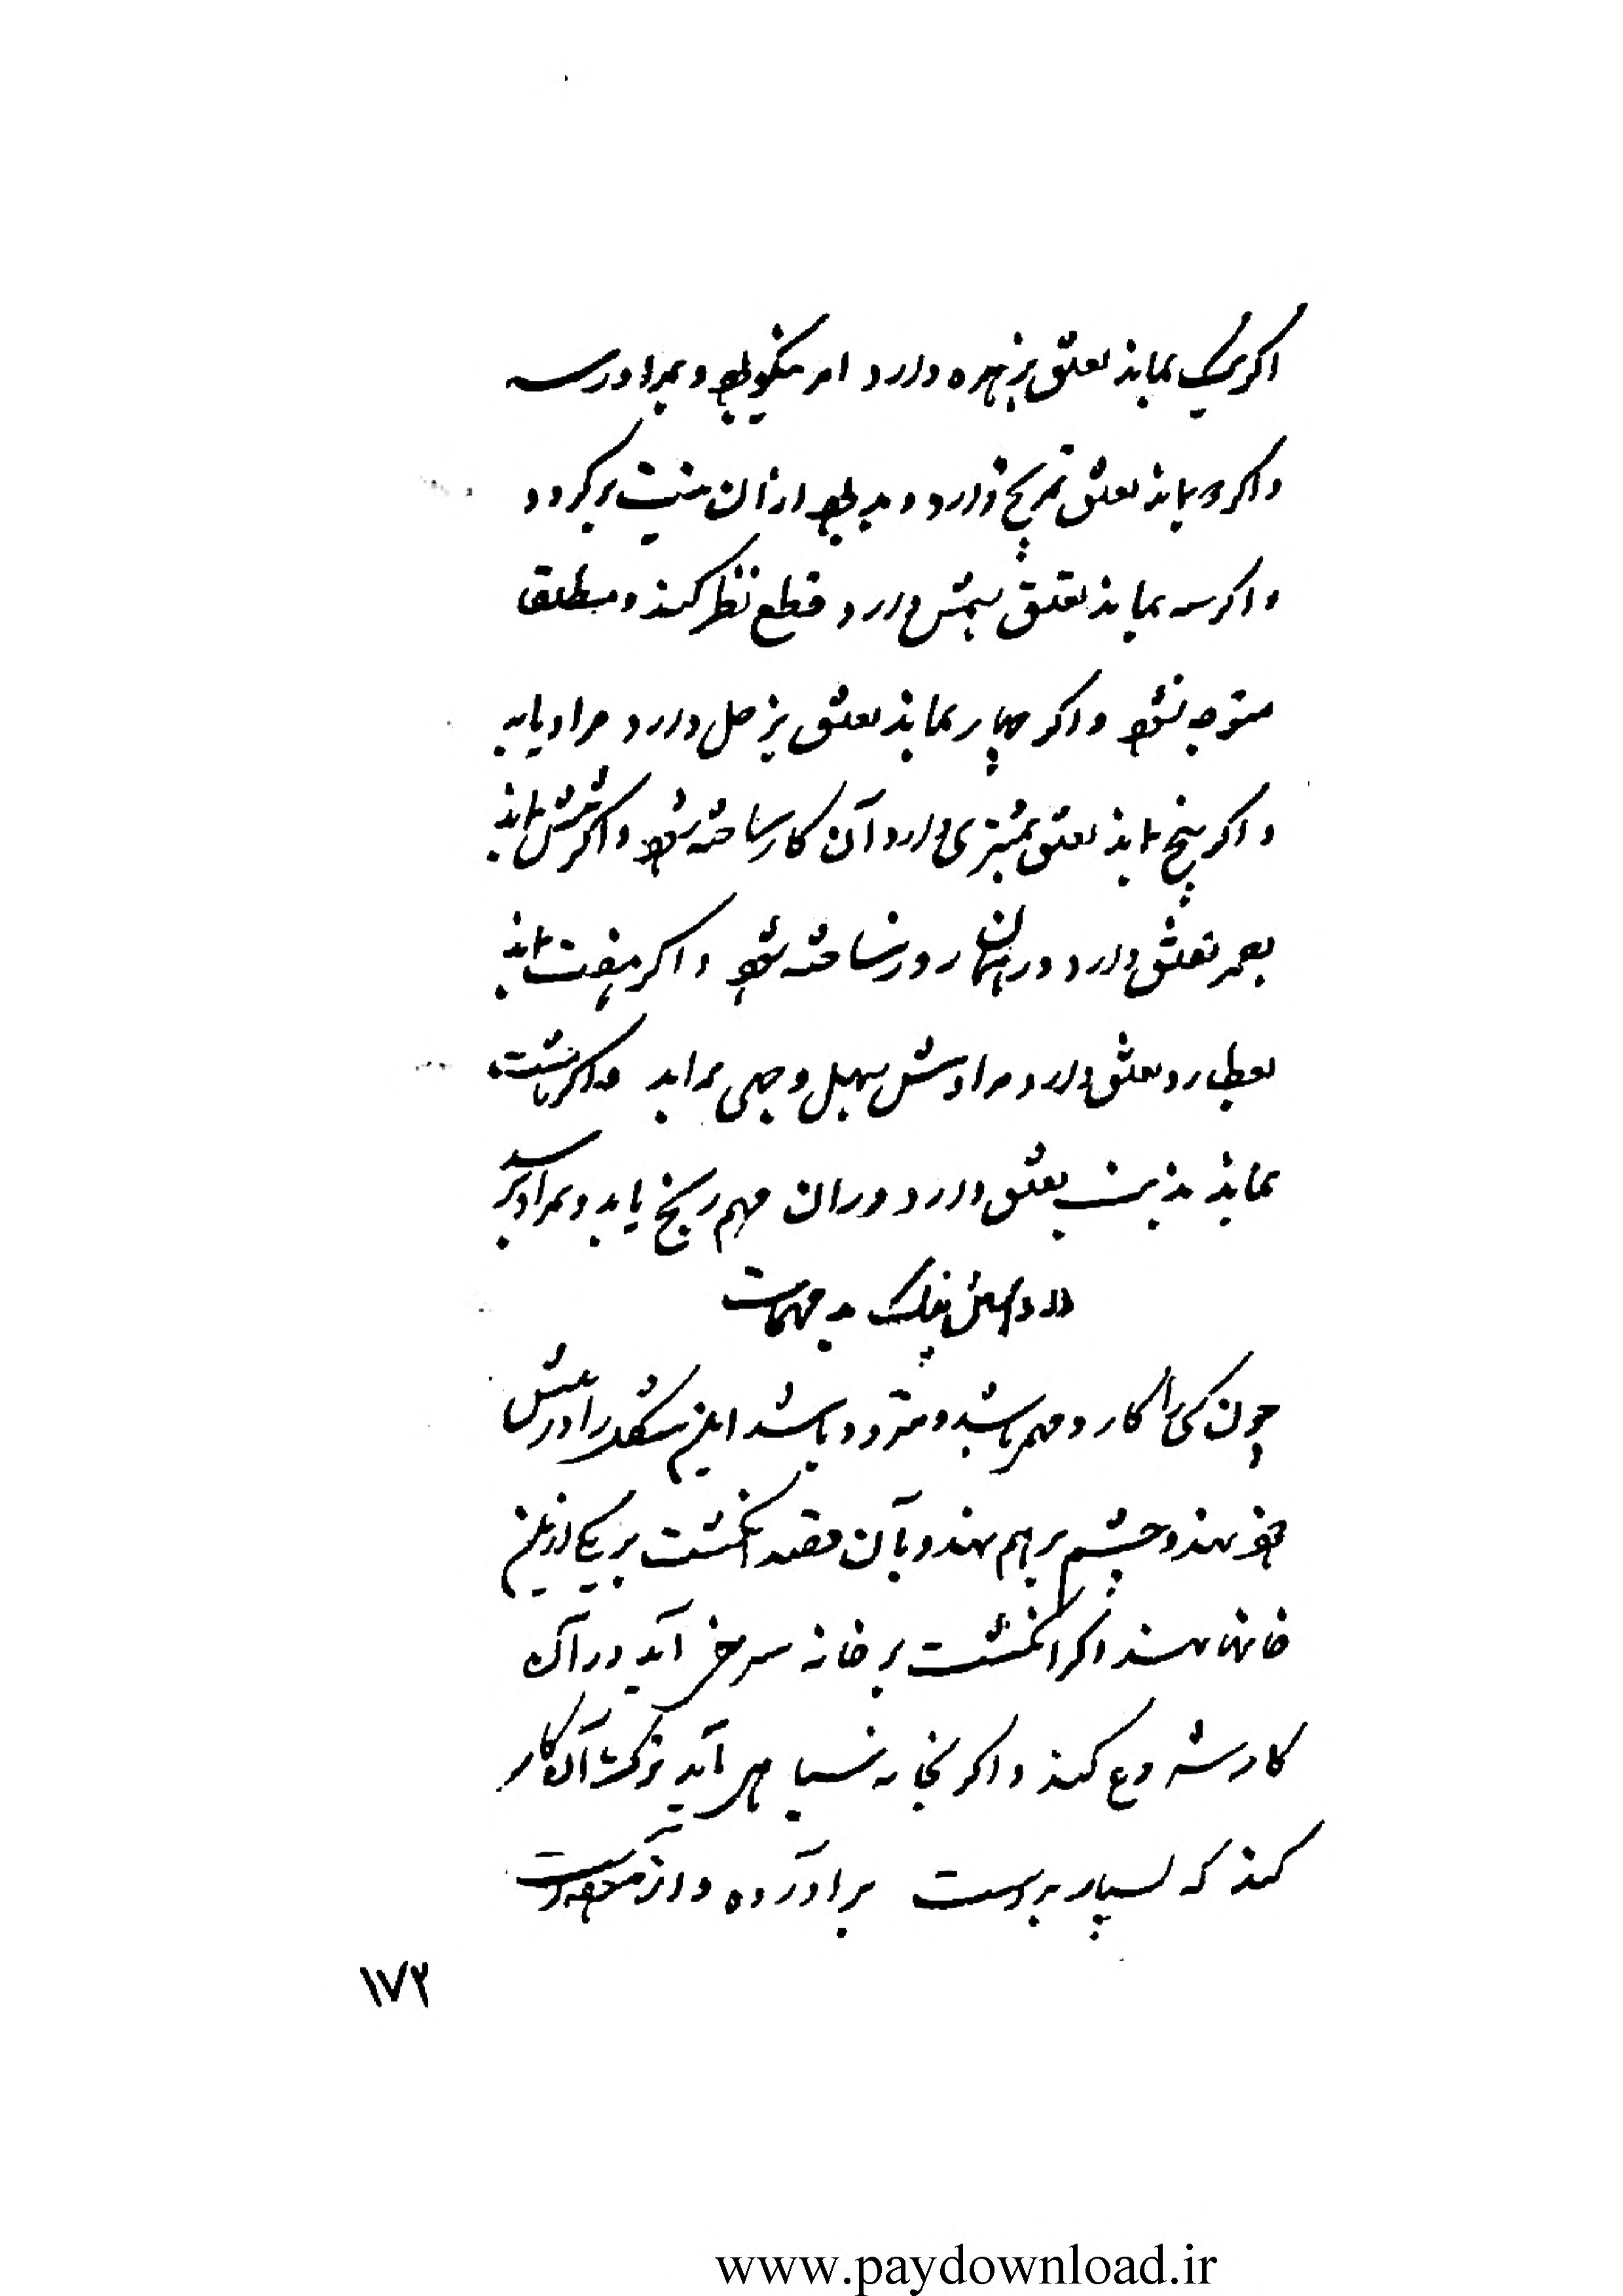 اگر یک بماند تعلق بزهره دارد امر نیکو بود و بمراد رسد
و اگر دو بماند تعلق بمریخ دارد و بد بود از آن نیت برگردد
و اگر سه بماند تعلق بشمس دارد قطع نظر کند و مطلقا
متوجه نشود و اگر چهار بماند تعلق بزحل دارد مراد یابد
و اگر پنج ماند تعلق بمشتری دارد آن کار ساخته شود و اگر شش ماند
بقمر تعلق دارد در همان روز ساخته شود و اگر هفت ماند
بعطارد تعلق دارد مرادش بسهل وجهی براید و اگر هشت
بماند بذنب تعلق دارد در آن مهم رنج یابد و بمراد نرسد
در دانستن نیک و بد مهمات
چون کسی را کار و مهم باشد و متردد باشد این شکل را در پیش
خود نهد و چشم بر هم نهد و بآن قصد انگشت بر یکی از این
خانها نهد اگر انگشت بر خانه سرخ آید در آن
کار شروع کند و اگر بخانه سیاهی آید ترک آن کار
کند که بسیار بد است بر آورده و از
۱۷۲
www.paydownload.ir